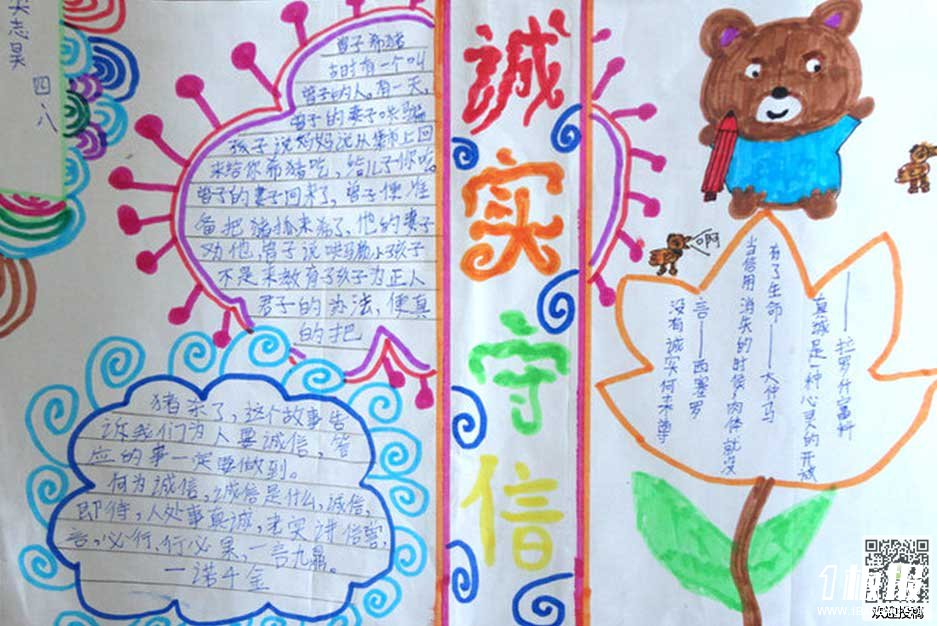 志昊
四、八
曾子希猪
古时有一个叫
曾子的人,有一天,
曾子的妻子哄骗
孩子说妈妈说从集市上回
来给你希猪吃,给儿子你吃。
曾子的妻子回来了,曾子便准
备把猪抓来杀了,他的妻子
劝他,曾子说哄骗小孩子
不是来教育子孩子为正人
君子的办法,便真
的把
猪杀了,这个故事告
诉我们为人要诚信,答
应的事一定要做到。
何为诚信,诚信是什么,诚信,
即待,人处事真诚,老实讲信誉,
言,必行,行必果,一言九鼎。
一诺千金
诚实守信
啊
——拉罗什富科
真诚是一种心灵的开放
有了生命——大仲马
当信用消失的时候,肉体就没
言——西塞罗
没有诚实何来尊
1板报
欢迎投稿